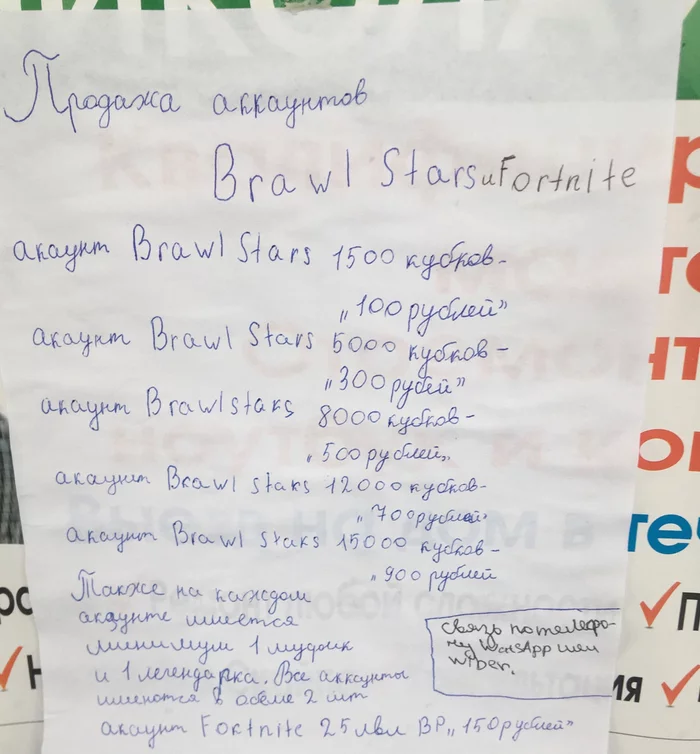 Продажа аккаунтов
Brawl Stars и Fortnite
акаунт Brawl Stars 1500 кубков-
„100 рублей”
акаунт Brawl Stars 5000 кубков-
„300 рубей”
акаунт Brawlstars 8000 кубков-
„500 рублей„
акаунт Brawl stars 12000 кубков-
„700рублей”
акаунт Brawl stars 15000 кубков-
„900 рублей
Также на каждом
акаунте имеется
минимум 1 мифик
и 1 легендарка. Все аккаунты
имеются в обеме 2 шт
Связь по телефо-
ну WhatsApp или
wiber.
акаунт Fortnite 25 лвл BP„150рублей”